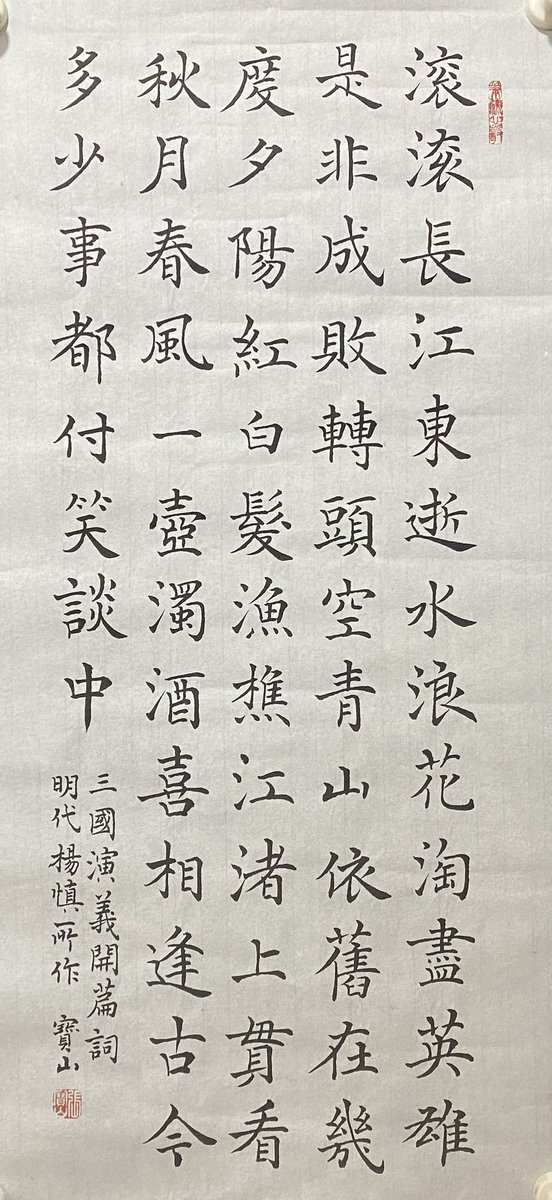 滚滚長江東逝水浪花淘盡英雄
是非成敗轉頭空青山依舊在幾
度夕陽紅白髮漁樵江渚上貫看
秋月春風一壺濁酒喜相逢古今
多少事都付笑談中
三國演義開篇詞
明代楊慎所作 寶山